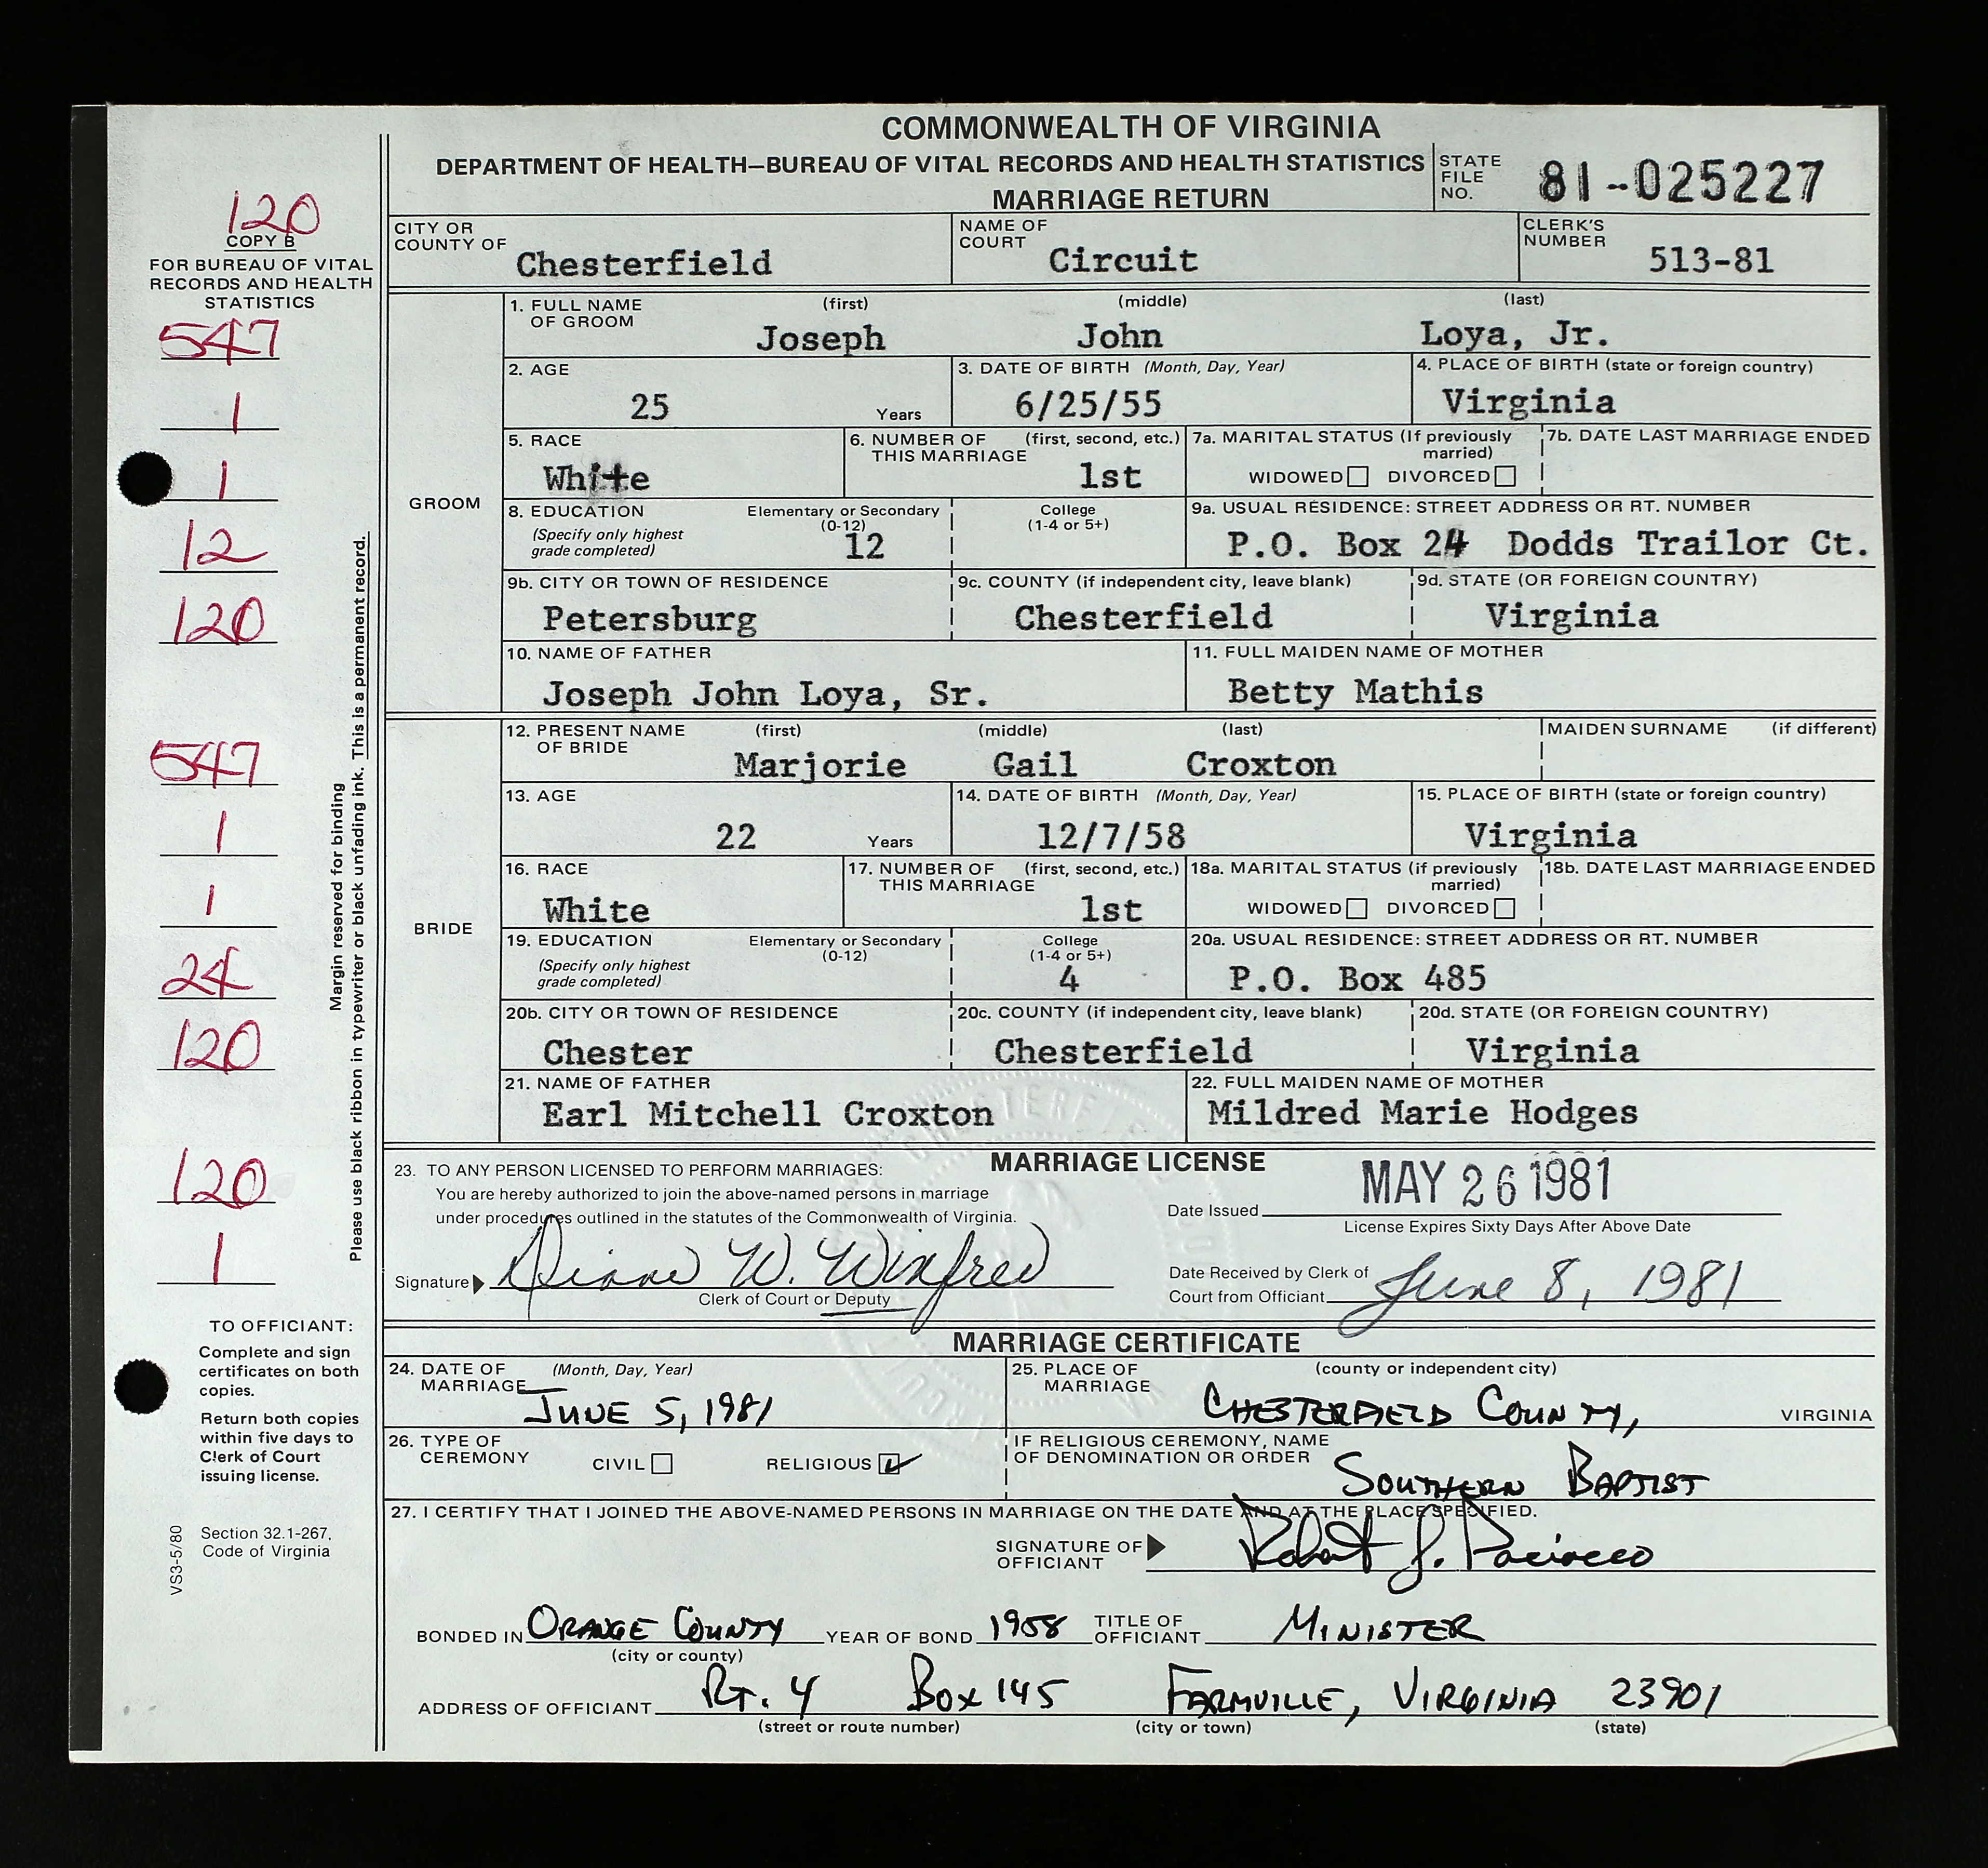 COMMONWEALTH OF VIRGINIA
DEPARTMENT OF HEALTH—BUREAU OF VITAL RECORDS AND HEALTH STATISTICS
MARRIAGE RETURN
STATE FILE NO. 81-025227
120
COPY B
FOR BUREAU OF VITAL
RECORDS AND HEALTH
STATISTICS
547
1
1
12
120
547
1
1
24
120
120
1
Margin reserved for binding
Please use black ribbon in typewriter or black unfading ink. This is a permanent record.
TO OFFICIANT:
Complete and sign
certificates on both
copies.
Return both copies
within five days to
Clerk of Court
issuing license.
Section 32.1-267,
Code of Virginia
VS3-5/80
CITY OR COUNTY OF Chesterfield
NAME OF COURT Circuit
CLERK'S NUMBER 513-81
GROOM
1. FULL NAME OF GROOM (first) (middle) (last)
Joseph John Loya, Jr.
2. AGE 25 Years
3. DATE OF BIRTH (Month, Day, Year) 6/25/55
4. PLACE OF BIRTH (state or foreign country) Virginia
5. RACE White
6. NUMBER OF THIS MARRIAGE (first, second, etc.) 1st
7a. MARITAL STATUS (If previously married)
WIDOWED DIVORCED
7b. DATE LAST MARRIAGE ENDED
8. EDUCATION (Specify only highest grade completed)
Elementary or Secondary (0-12) 12
College (1-4 or 5+)
9a. USUAL RESIDENCE: STREET ADDRESS OR RT. NUMBER
P.O. Box 24 Dodds Trailor Ct.
9b. CITY OR TOWN OF RESIDENCE Petersburg
9c. COUNTY (if independent city, leave blank) Chesterfield
9d. STATE (OR FOREIGN COUNTRY) Virginia
10. NAME OF FATHER Joseph John Loya, Sr.
11. FULL MAIDEN NAME OF MOTHER Betty Mathis
BRIDE
12. PRESENT NAME OF BRIDE (first) (middle) (last)
Marjorie Gail Croxton
MAIDEN SURNAME (if different)
13. AGE 22 Years
14. DATE OF BIRTH (Month, Day, Year) 12/7/58
15. PLACE OF BIRTH (state or foreign country) Virginia
16. RACE White
17. NUMBER OF THIS MARRIAGE (first, second, etc.) 1st
18a. MARITAL STATUS (if previously married)
WIDOWED DIVORCED
18b. DATE LAST MARRIAGE ENDED
19. EDUCATION (Specify only highest grade completed)
Elementary or Secondary (0-12)
College (1-4 or 5+) 4
20a. USUAL RESIDENCE: STREET ADDRESS OR RT. NUMBER
P.O. Box 485
20b. CITY OR TOWN OF RESIDENCE Chester
20c. COUNTY (if independent city, leave blank) Chesterfield
20d. STATE (OR FOREIGN COUNTRY) Virginia
21. NAME OF FATHER Earl Mitchell Croxton
22. FULL MAIDEN NAME OF MOTHER Mildred Marie Hodges
MARRIAGE LICENSE
23. TO ANY PERSON LICENSED TO PERFORM MARRIAGES:
You are hereby authorized to join the above-named persons in marriage
under procedures outlined in the statutes of the Commonwealth of Virginia.
Date Issued MAY 26 1981
License Expires Sixty Days After Above Date
Signature Diane W. Winfree
Clerk of Court or Deputy
Date Received by Clerk of
Court from Officiant June 8, 1981
MARRIAGE CERTIFICATE
24. DATE OF MARRIAGE (Month, Day, Year) JUNE 5, 1981
25. PLACE OF MARRIAGE (county or independent city) CHESTERFIELD COUNTY, VIRGINIA
26. TYPE OF CEREMONY CIVIL RELIGIOUS
IF RELIGIOUS CEREMONY, NAME OF DENOMINATION OR ORDER SOUTHERN BAPTIST
27. I CERTIFY THAT I JOINED THE ABOVE-NAMED PERSONS IN MARRIAGE ON THE DATE AND AT THE PLACE SPECIFIED.
SIGNATURE OF OFFICIANT Robert J. Paciocco
BONDED IN ORANGE COUNTY YEAR OF BOND 1958 TITLE OF OFFICIANT MINISTER
(city or county)
ADDRESS OF OFFICIANT RT. 4 BOX 145 FARMVILLE, VIRGINIA 23901
(street or route number) (city or town) (state)